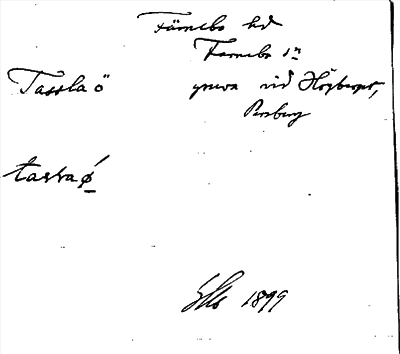 Färnebo hd
Farnebo sn
Tassla ö gruva vid Högberget,
Persberg
tassaǿ
1899